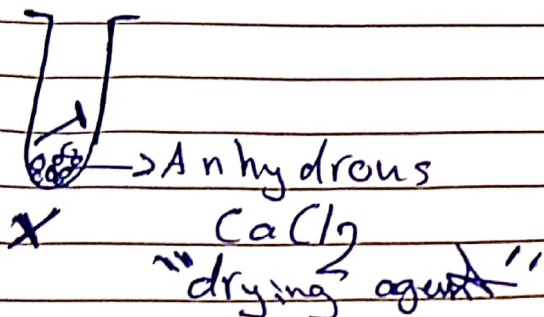 →Anhydrous
X CaCl2
"drying agent"